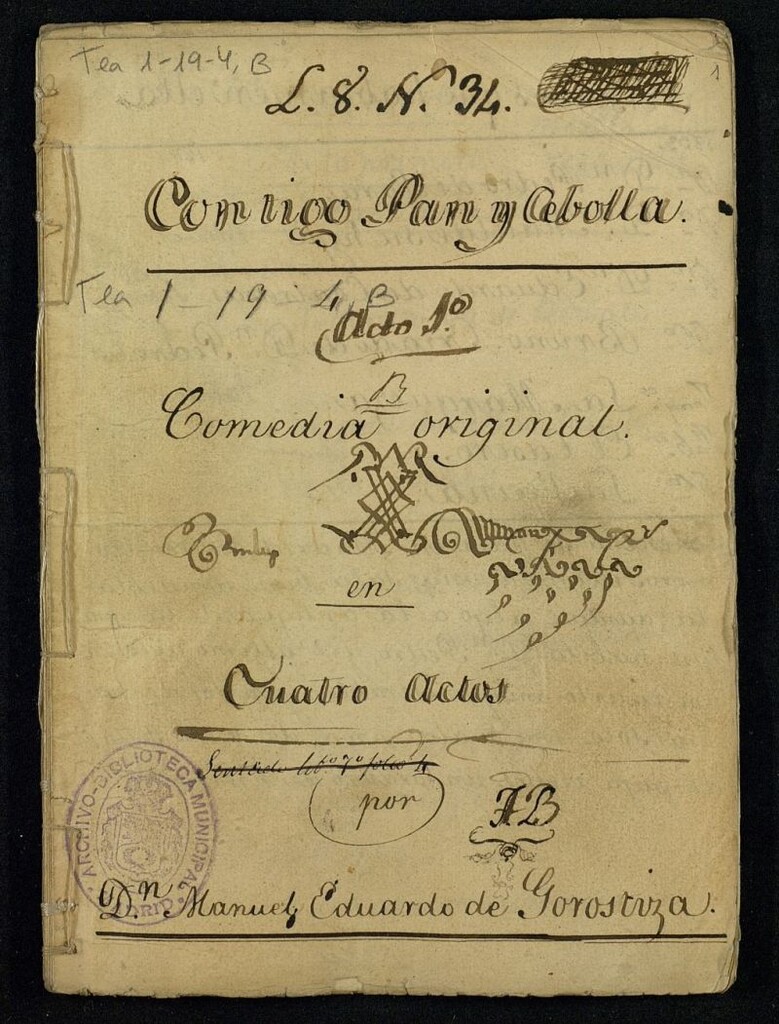 Tea 1-19-4, B
L. 8. N.º 34.
1
Contigo Pan y Cebolla.
Tea 1-19-4, B
Acto 1.º
B
Comedia original.
en
Cuatro Actos
por
AB
ARCHIVO-BIBLIOTECA MUNICIPAL
MADRID
Dn Manuel Eduardo de Gorostiza.